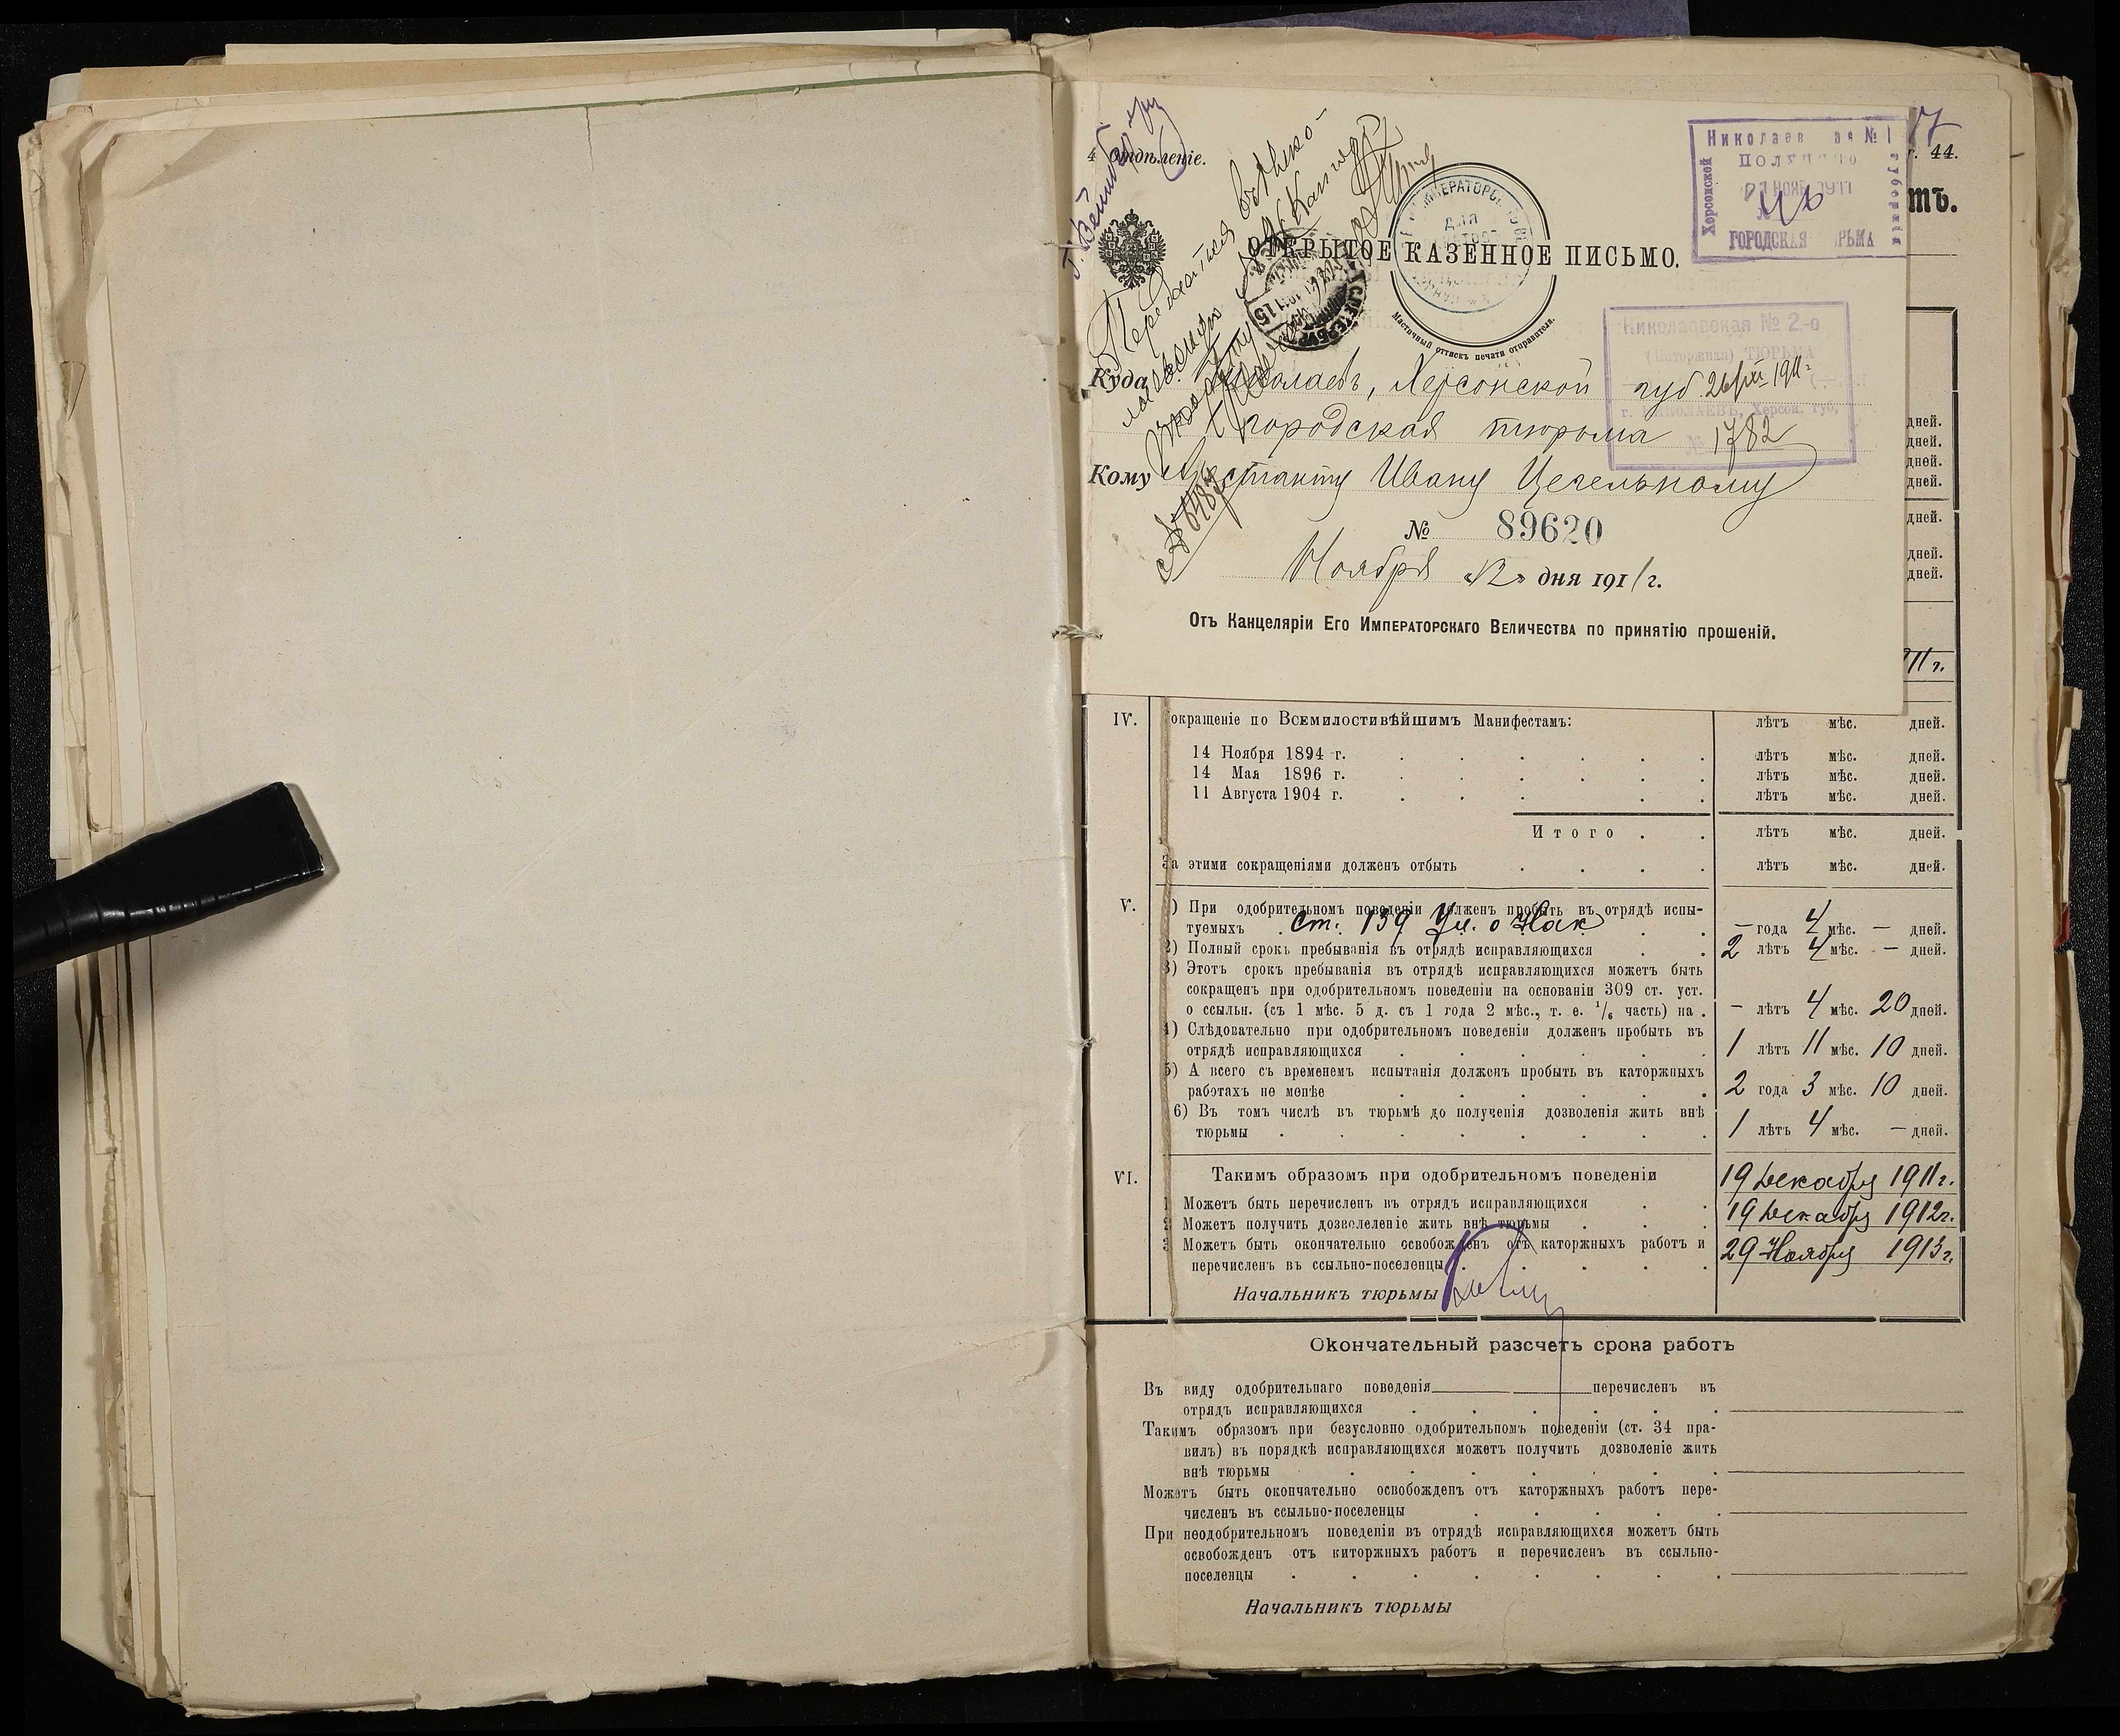 4 Отдѣленіе.
ОТКРЫТОЕ КАЗЕННОЕ ПИСЬМО.
Мастичный оттискъ печати отправителя.
Николаев ая № 1
Херсонской
ПОЛУЧЕНО
НОЯБ 1911
ГОРОДСКАЯ РЬМА
губерніи
г. 44.
тъ.
Николаевская № 2-о
(Каторжная) ТЮРЬМА
26/XI 1911 г.
г. НИКОЛАЕВЪ, Херсон. губ,
№ 1782
Куда г. Николаевъ, Херсонской губ.
городская тюрьма
Кому Арестанту Ивану Цегельному
№ 89620
Ноября «12» дня 1911 г.
Отъ Канцеляріи Его Императорскаго Величества по принятію прошеній.
дней.
дней.
дней.
дней.
дней.
дней.
дней.
11 г.
IV. окращеніе по Всемилостивѣйшимъ Манифестамъ: лѣтъ мѣс. дней.
14 Ноября 1894 г. лѣтъ мѣс. дней.
14 Мая 1896 г. лѣтъ мѣс. дней.
11 Августа 1904 г. лѣтъ мѣс. дней.
Итого лѣтъ мѣс. дней.
За этими сокращеніями долженъ отбыть лѣтъ мѣс. дней.
V. 1) При одобрительномъ поведеніи долженъ пробыть въ отрядѣ испы-
туемыхъ ст. 139 Ул. о Нак — года 4 мѣс. — дней.
2) Полный срокъ пребыванія въ отрядѣ исправляющихся 2 лѣтъ 4 мѣс. — дней.
3) Этотъ срокъ пребыванія въ отрядѣ исправляющихся можетъ быть
сокращенъ при одобрительномъ поведеніи на основаніи 309 ст. уст.
о ссыльн. (съ 1 мѣс. 5 д. съ 1 года 2 мѣс., т. е. 1/6 часть) на. — лѣтъ 4 мѣс. 20 дней.
4) Слѣдовательно при одобрительномъ поведеніи долженъ пробыть въ
отрядѣ исправляющихся 1 лѣтъ 11 мѣс. 10 дней.
5) А всего съ временемъ испытанія долженъ пробыть въ каторжныхъ
работахъ не менѣе 2 года 3 мѣс. 10 дней.
6) Въ томъ числѣ въ тюрьмѣ до полученія дозволенія жить внѣ
тюрьмы 1 лѣтъ 4 мѣс. — дней.
VI. Такимъ образомъ при одобрительномъ поведеніи
1 Можетъ быть перечисленъ въ отрядъ исправляющихся 19 Декабря 1911 г.
2 Можетъ получить дозволеленіе жить внѣ тюрьмы 19 Декабря 1912 г.
3 Можетъ быть окончательно освобожденъ отъ каторжныхъ работъ и
перечисленъ въ ссыльно-поселенцы 29 Ноября 1913 г.
Начальникъ тюрьмы
Окончательный разсчетъ срока работъ
Въ виду одобрительнаго поведенія перечисленъ въ
отрядъ исправляющихся
Такимъ образомъ при безусловно одобрительномъ поведеніи (ст. 34 пра-
вилъ) въ порядкѣ исправляющихся можетъ получить дозволеніе жить
внѣ тюрьмы
Можетъ быть окончательно освобожденъ отъ каторжныхъ работъ пере-
численъ въ ссыльно-поселенцы
При неодобрительномъ поведеніи въ отрядѣ исправляющихся можетъ быть
освобожденъ отъ киторжныхъ работъ и перечисленъ въ ссыльно-
поселенцы
Начальникъ тюрьмы